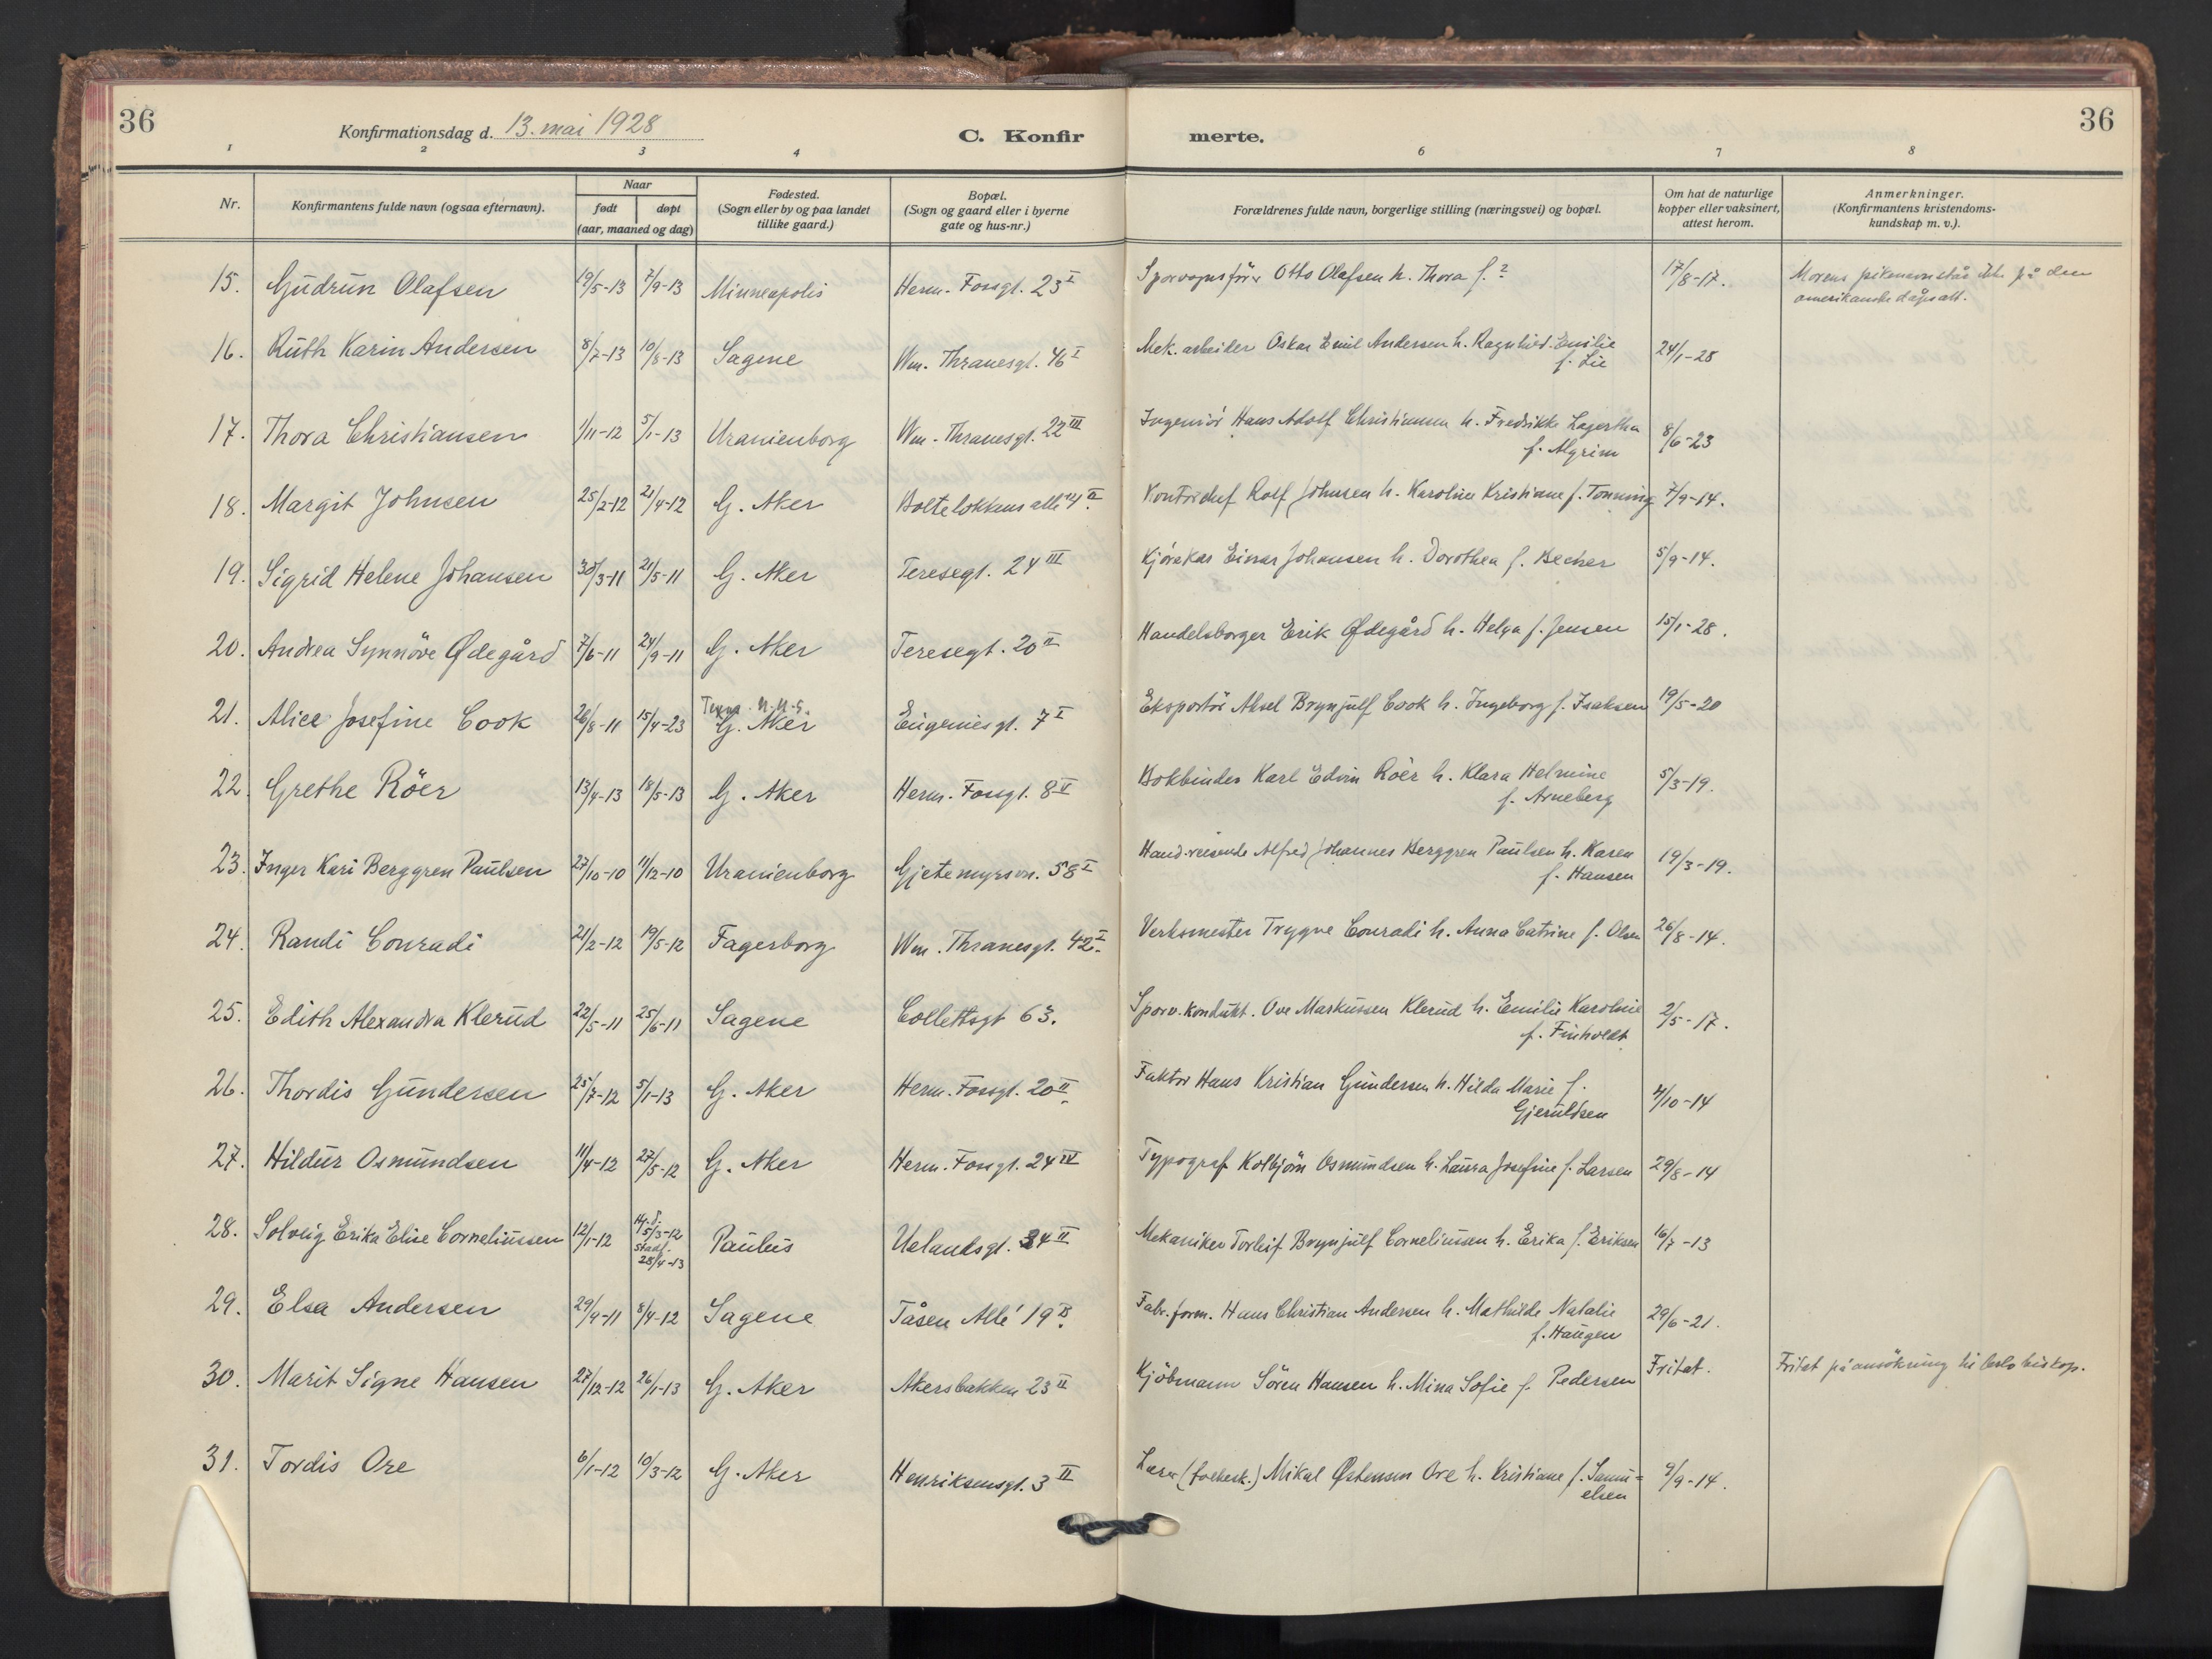 36
Konfirmationsdag d. 13. mai 1928
C. Konfir merte.
36
1 2 3 4 6 7 8
Nr.
Konfirmantens fulde navn (ogsaa efternavn).
Naar
født døpt
(aar, maaned og dag)
Fødested.
(Sogn eller by og paa landet
tillike gaard.)
Bopæl.
(Sogn og gaard eller i byerne
gate og hus-nr.)
Forældrenes fulde navn, borgerlige stilling (næringsvei) og bopæl.
Om hat de naturlige
kopper eller vaksinert,
attest herom.
Anmerkninger.
(Konfirmantens kristendoms-
kundskap m. v.).
15. Gudrun Olafsen 19/5-13 7/9-13 Minneapolis Herm. Fossgt. 23 I Sporvognsfører Otto Olafsen h. Thora f. ? 17/8-17. Morens pikenavn står ikke på den
amerikanske dåpsatt.
16. Ruth Karin Andersen 8/7-13 10/8-13 Sagene Wm. Thranesgt. 46 I Mek. arbeider Oskar Emil Andersen h. Ragnhild Emilie
f. Lie 24/1-28
17. Thora Christiansen 1/11-12 5/1-13 Uranienborg Wm. Thranesgt. 22 III Ingeniör Hans Adolf Christiansen h. Fredrikke Lagertha
f. Algrim 8/6-23
18. Margit Johnsen 25/2-12 21/4-12 G. Aker Boltelökkens alle 4 II Kontorchef Rolf Johnsen h. Karoline Kristiane f. Tonning 7/9-14.
19. Sigrid Helene Johansen 30/3-11 21/5-11 G. Aker Teresegt. 24 III Kjörekar Einar Johansen h. Dorothea f. Becher 5/9-14.
20. Andrea Synnöve Ødegård 7/6-11 24/9-11 G. Aker Teresegt. 20 II Handelsborger Erik Ødegård h. Helga f. Jensen 15/1-28.
21. Alice Josefine Cook 26/8-11 15/4-23 G. Aker Eugeniesgt. 7 I Eksportör Aksel Brynjulf Cook h. Ingeborg f. Isaksen 19/5-20
22. Grethe Röer 13/4-13 18/5-13 G. Aker Herm. Fossgt. 8 II Bokbinder Karl Edvin Röer h. Klara Helmine
f. Arneberg 5/3-19.
23. Inger Kari Berggren Paulsen 27/10-10 11/12-10 Uranienborg Gjetemyrsvn. 58 I Hand.reisende Alfred Johannes Berggren Paulsen h. Karen
f. Hansen 19/3-19.
24. Randi Conradi 21/2-12 19/5-12 Fagerborg Wm. Thranesgt. 42 I Verksmester Trygve Conradi h. Anna Catrine f. Olsen 26/8-14.
25. Edith Alexandra Klerud 22/5-11 25/6-11 Sagene Collettsgt 63. Sporv. kondukt. Ove Markussen Klerud h. Emilie Karoline
f. Finholdt 2/5-17.
26. Thordis Gundersen 25/7-12 5/1-13 G. Aker Herm. Fossgt. 20 II Faktor Hans Kristian Gundersen h. Hilda Marie f.
Gjeruldsen 4/10-14
27. Hildur Osmundsen 11/4-12 27/5-12 G. Aker Herm. Fossgt. 24 IV Typograf Kolbjörn Osmundsen h. Laura Josefine f. Larsen 29/8-14
28. Solveig Erika Elise Corneliussen 12/1-12 Hj.d. 5/3-12
stadf.
28/4-13 Paulus Uelandsgt. 34 II Mekaniker Torleif Brynjulf Corneliussen h. Erika f. Eriksen 16/7-13
29. Elsa Andersen 29/9-11 8/4-12 Sagene Tåsen Allé 19 Fabr.form. Hans Christian Andersen h. Mathilde Natalie
f. Haugen 29/6-21.
30. Marit Signe Hansen 27/12-12 26/1-13 G. Aker Akersbakken 23 II Kjöbmann Sören Hansen h. Mina Sofie f. Pedersen Fritat. Fritat på ansökning til Oslo biskop.
31. Tordis Ore 6/1-12 10/3-12 G. Aker Henriksensgt. 3 II Lærer (folkesk.) Mikal Østensen Ore h. Kristiane f. Samu=
elsen 9/9-14.